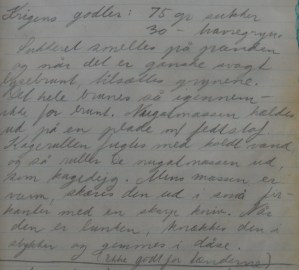 Krigens godter: 75 gr sukker
30 - havregryn.
Sukkeret smeltes på panden
og når det er ganske svagt
lysebrunt, tilsættes grynene.
Det hele brunes så igennem -
ikke for brunt. Nugatmassen hældes
ud på en plade m/ fedtstof
Kagerullen fugtes med koldt vand
og så rulles nugatmassen ud,
som kagedejg. Mens massen er
varm, skæres den ud i små fir-
kanter med en skarp kniv. Når
den er , knækkes den i
stykker og gemmes i dåse.
(ikke godt for tænderne)